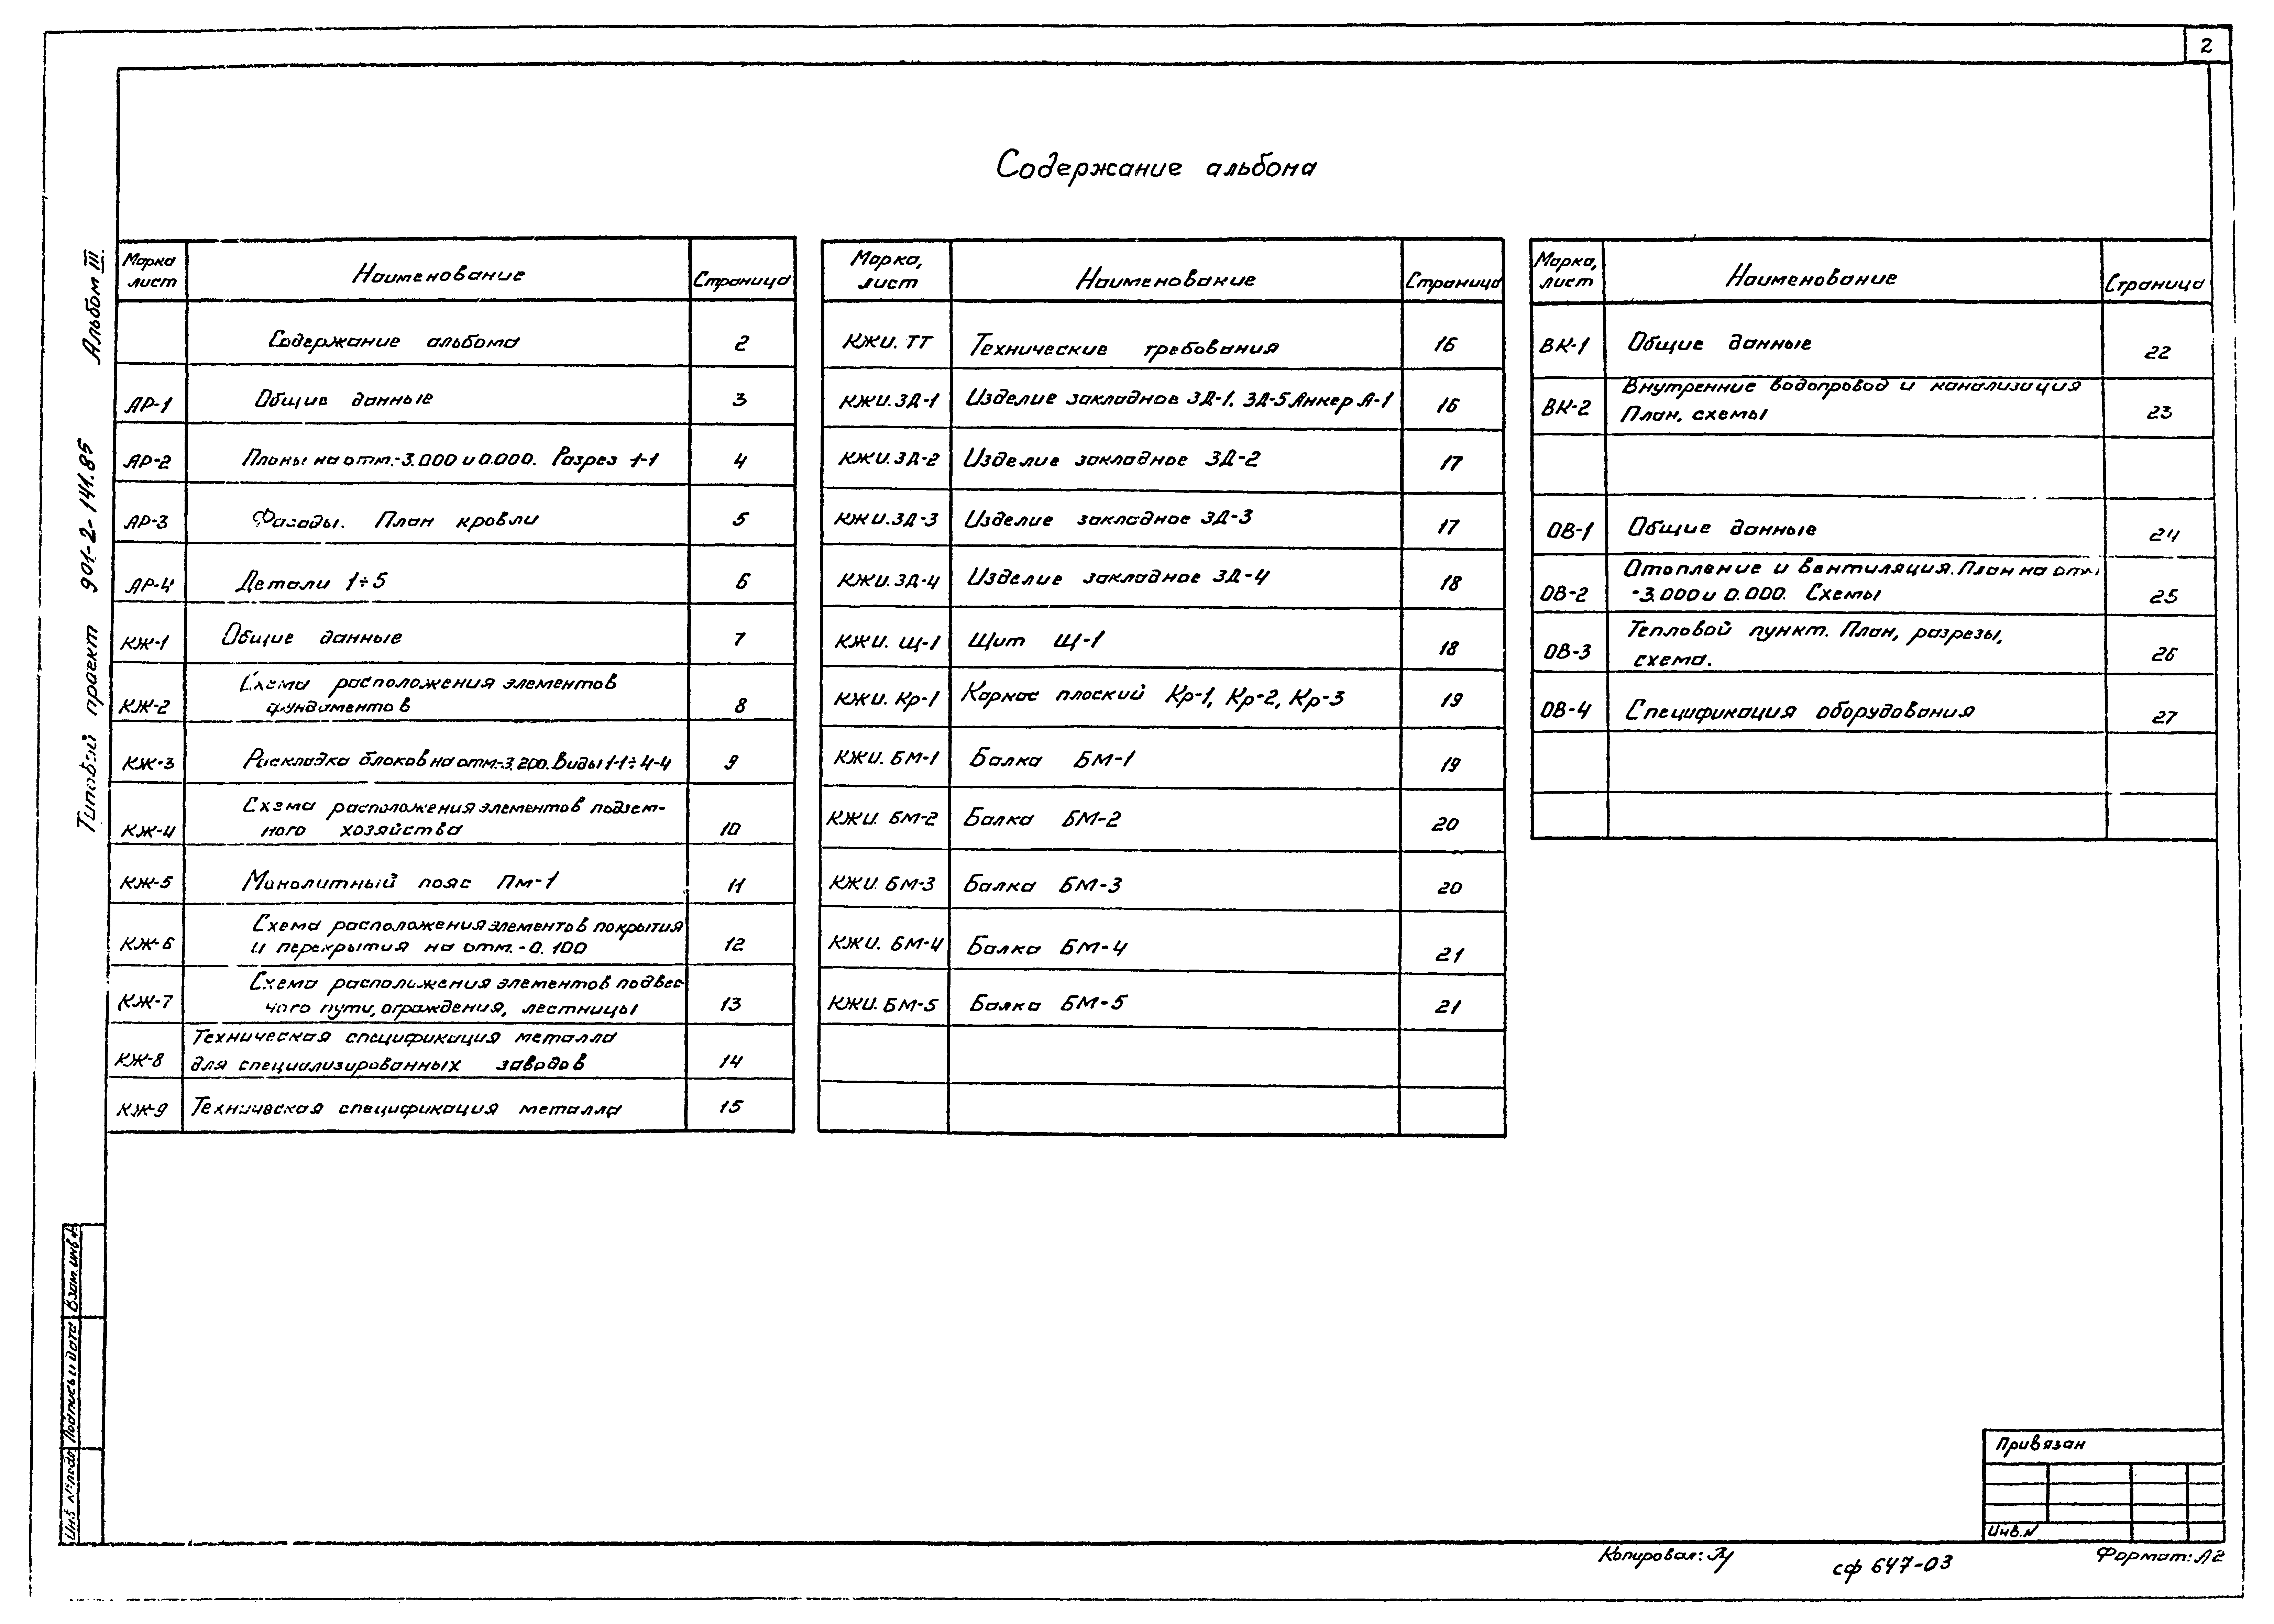 2
Содержание альбома
Альбом III
Типовой проект 901-2-141.85
Марка лист Наименование Страница
Содержание альбома 2
АР-1 Общие данные 3
АР-2 Планы на отм.-3.000 и 0.000. Разрез 1-1 4
АР-3 Фасады. План кровли 5
АР-4 Детали 1÷5 6
КЖ-1 Общие данные 7
КЖ-2 Схема расположения элементов
фундаментов 8
КЖ-3 Раскладка блоков на отм.-3.200. Виды 1-1÷4-4 9
КЖ-4 Схема расположения элементов подзем-
ного хозяйства 10
КЖ-5 Монолитный пояс Пм-1 11
КЖ-6 Схема расположения элементов покрытия
и перекрытия на отм.-0.100 12
КЖ-7 Схема расположения элементов подвес-
ного пути, ограждения, лестницы 13
КЖ-8 Техническая спецификация металла
для специализированных заводов 14
КЖ-9 Техническая спецификация металла 15
Марка, лист Наименование Страница
КЖИ. ТТ Технические требования 16
КЖИ.ЗД-1 Изделие закладное ЗД-1. ЗД-5 Анкер А-1 16
КЖИ.ЗД-2 Изделие закладное ЗД-2 17
КЖИ.ЗД-3 Изделие закладное ЗД-3 17
КЖИ.ЗД-4 Изделие закладное ЗД-4 18
КЖИ. Щ-1 Щит Щ-1 18
КЖИ. Кр-1 Каркас плоский Кр-1, Кр-2, Кр-3 19
КЖИ. БМ-1 Балка БМ-1 19
КЖИ. БМ-2 Балка БМ-2 20
КЖИ. БМ-3 Балка БМ-3 20
КЖИ. БМ-4 Балка БМ-4 21
КЖИ. БМ-5 Балка БМ-5 21
Марка, лист Наименование Страница
ВК-1 Общие данные 22
ВК-2 Внутренние водопровод и канализация
План, схемы 23
ОВ-1 Общие данные 24
ОВ-2 Отопление и вентиляция. План на отм.
-3.000 и 0.000. Схемы 25
ОВ-3 Тепловой пункт. План, разрезы,
схема. 26
ОВ-4 Спецификация оборудования 27
Взам. инв.№
Подпись и дата
Инв. № подл.
Привязан
Инв.N
Копировал:
сф 647-03
Формат: А2